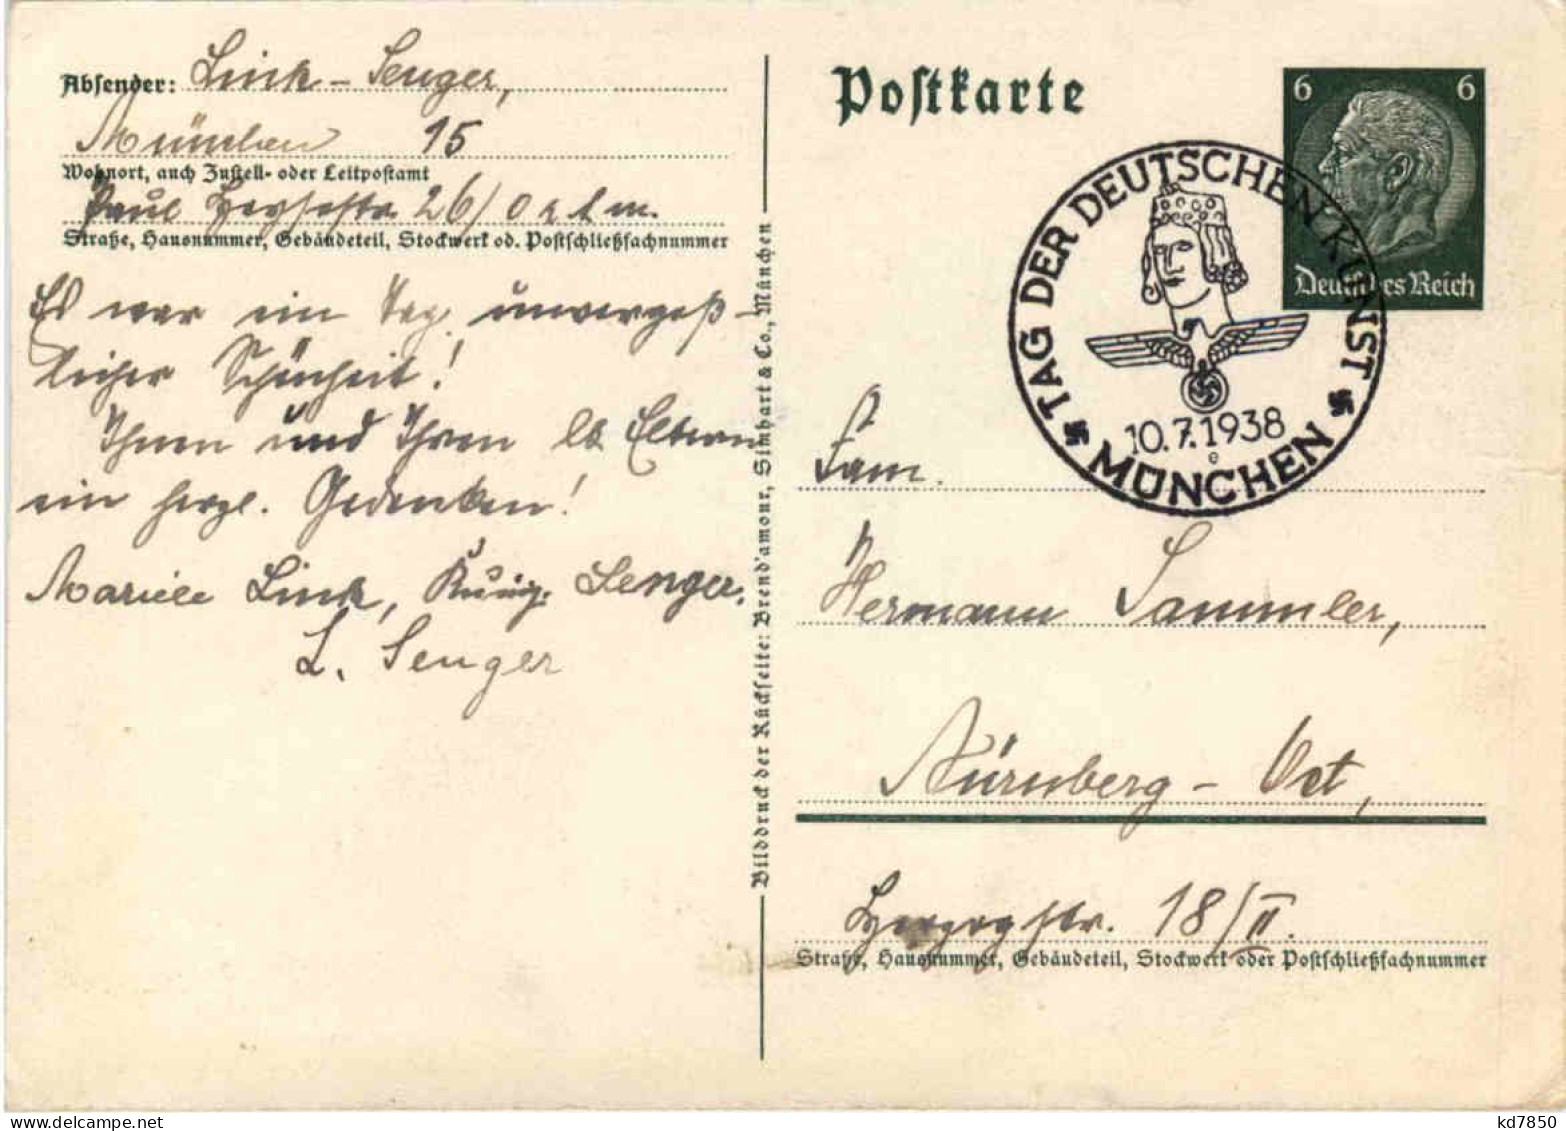 Absender: Link - Senger,
München 15
Wohnort, auch Zustell- oder Leitpostamt
Paul Heysestr. 26/0 r. b. m.
Straße, Hausnummer, Gebäudeteil, Stockwerk od. Postschließfachnummer
Es war ein Tag unvergeß-
licher Schönheit!
Ihnen und Ihren lb. Eltern
ein herzl. Gedenken!
Mariele Link, Senger.
L. Senger
Bilddruck der Rückseite: Brend'amour, Simhart & Co., München
Postkarte
6 6
Deutsches Reich
TAG DER DEUTSCHEN KUNST
10.7.1938
e
MÜNCHEN
Fam.
Hermann Sammler,
Nürnberg - Ost,
Herzogstr. 18/II.
Straße, Hausnummer, Gebäudeteil, Stockwerk oder Postschließfachnummer
kd7850